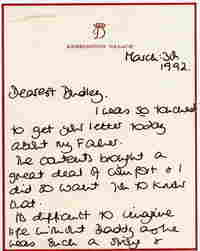 D
KENSINGTON PALACE
March. 3rd
1992.
Dearest Dudley,
I was so touched
to get your letter today
about my Father.
The contents brought a
great deal of comfort & I
did so want you to know
that.
Its difficult to imagine
life without Daddy as he
was such a strong &